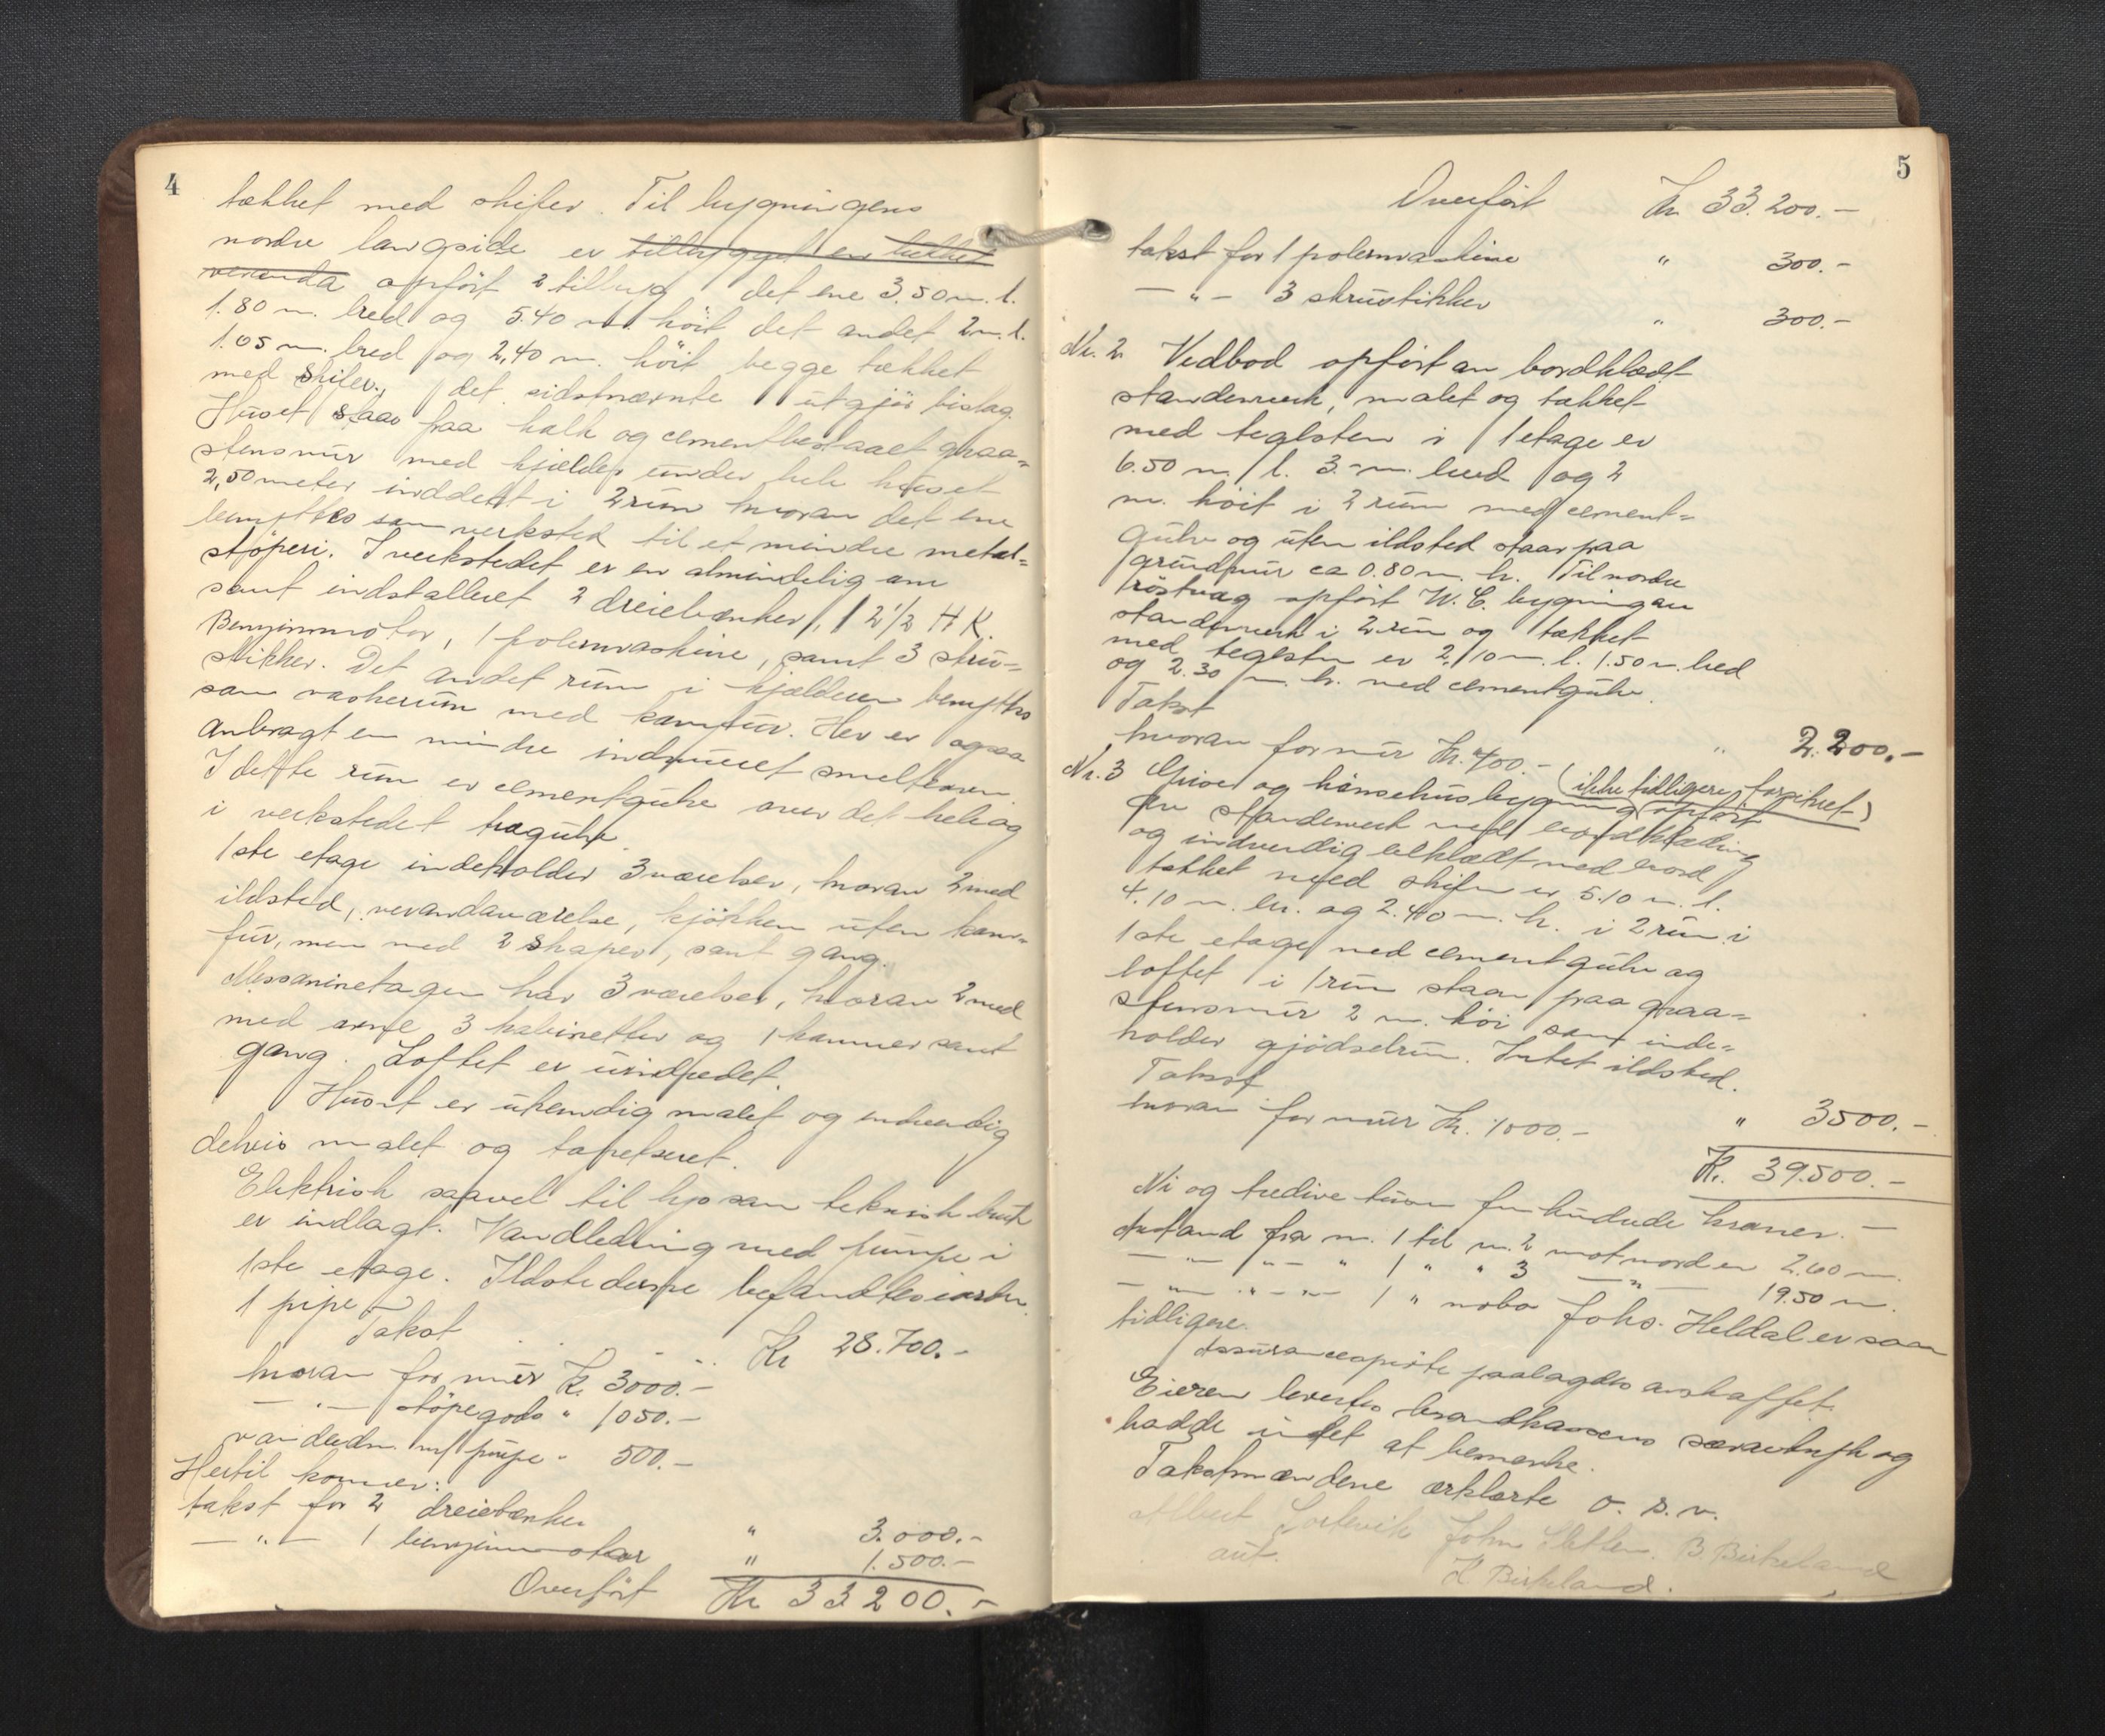 4
tækket med skifer. Til bygningens
nordre langside er tilbygget en lukket
veranda opført 2 tilbyg det ene 3,50 m. l.
1.80 m. bred og 5.40 m. høit det andet 2 m. l.
1.05 m. bred og 2,40 m. høit begge tækket
med skifer, det sidstnævnte utgjør bislag.
Huset staar paa kalk og cementbeslaaet graa=
stensmur med kjelder under hele huset
2,50 meter inddelt i 2 rum hvorav det ene
benyttes som verksted til et mindre metal=
støperi. I verkstedet er en almindelig ovn
samt indstalleret 2 dreiebænker, 1 2 1/2 H K.
Benzinmotor, 1 polermaskine, samt 3 skru=
stikker. Det andet rum i kjælderen benyttes
som vaskerum med komfur. Her er ogsaa
anbragt en mindre indmuret smelteovn.
I dette rum er cementgulv over det hele og
i verkstedet trægulv.
1ste etage indeholder 3 værelser, hvorav 2 med
ildsted, verandaværelse, kjøkken uten kom=
fur, men med 2 skaper, samt gang.
Messaninetagen har 3 værelser, hvorav 2 med
med ovne, 3 kabinetter og 1 kammer samt
gang. Loftet er uindredet.
Huset er utvendig malet og indvendig
delvis malet og tapetseret.
Elektrisk saavel til lys som teknisk bruk
er indlagt. Vandledning med pumpe i
1ste etage. Ildstederne befandtes i orden.
1 pipe
Takst Kr 28.700.-
hvorav for mur Kr. 3000.-
- " - støpegods " 1050.-
vandledn. m/ pumpe " 500.-
Hertil kommer:
takst for 2 dreiebænker " 3.000.-
- " - 1 benzinmotor " 1.500.-
Overført Kr 33200.-
5
Overført Kr 33.200.-
takst for 1 polermaskine " 300.-
- " - 3 skrustikker " 300.-
Nr. 2 Vedbod opført av bordklædt
standerverk, malet og tækket
med teglsten i 1 etage er
6.50 m. l. 3.- m. bred og 2
m. høit i 2 rum med cement=
gulv og uten ildsted staar paa
grundmur ca 0.80 m. h. Til nordre
røstvæg opført W. C. bygning av
standerverk i 2 rum og tækket
med teglsten er 2,10 m. l. 1.50 m. bred
og 2.30 m. h. med cementgulv.
Takst " 2.200.-
hvorav for mur Kr. 400.-
Nr. 3 Grise og hønsehusbygning (ikke tidligere forsikret) opført
av standerverk med bordklædning
og indvendig beklædt med bord
tækket med skifer er 5.10 m. l.
4.10 m. br. og 2.40 m. h. i 2 rum i
1ste etage med cementgulv og
loftet i 1 rum staar paa graa=
stensmur 2 m. høi som inde=
holder gjødselrum. Intet ildsted.
Takst " 3500.-
hvorav for mur Kr. 1000.-
Kr. 39.500.-
Ni og tredive tusen fem hundrede kroner. -
Avstand fra nr. 1 til nr. 2 mot nord er 2.60 m.
- " - " - " 1 " " 3 - " - 19.50 m.
- " - " - " - 1 " nabo Johs. Heldal er som
tidligere.
Assuranceapirte paalagdes anskaffet.
Eieren levertes brandkassens særavtryk og
hadde intet at bemerke.
Takstmændene erklærte o. s. v.
Albert John Sletten. B Birkeland
aut. K Birkeland.